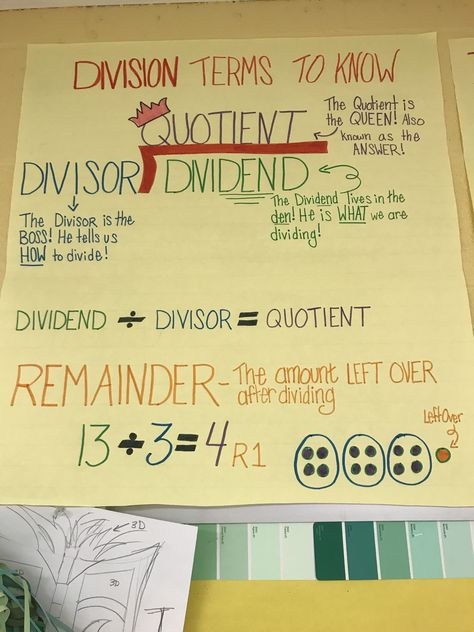 DIVISION TERMS TO KNOW
QUOTIENT
The Quotient is
the QUEEN! Also
known as the
ANSWER!
DIVISOR DIVIDEND
The Divisor is the
BOSS! He tells us
HOW to divide!
The Dividend lives in the
den! He is WHAT we are
dividing!
DIVIDEND ÷ DIVISOR = QUOTIENT
REMAINDER - The amount LEFT OVER
after dividing
13 ÷ 3 = 4 R1
Left Over
3D
3D